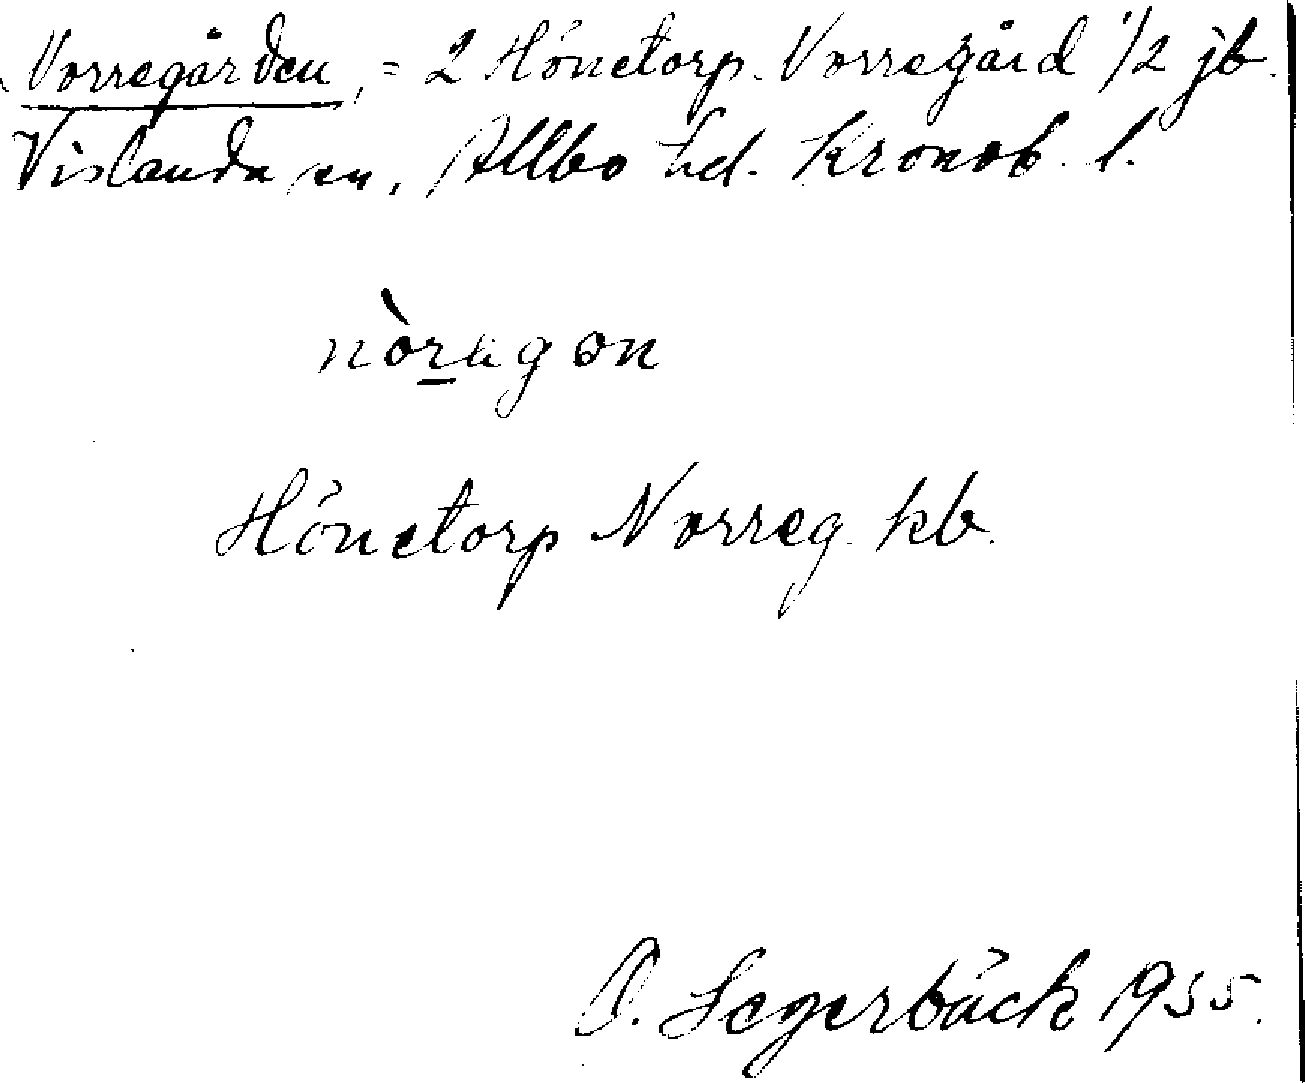 Norregården, = 2 Hönetorp Norregård 1/2 jb.
Vislanda sn, Allbo hd. Kronob. l.
nòragən
Hönetorp Norreg. kb.
O. Segerbäck 1955.